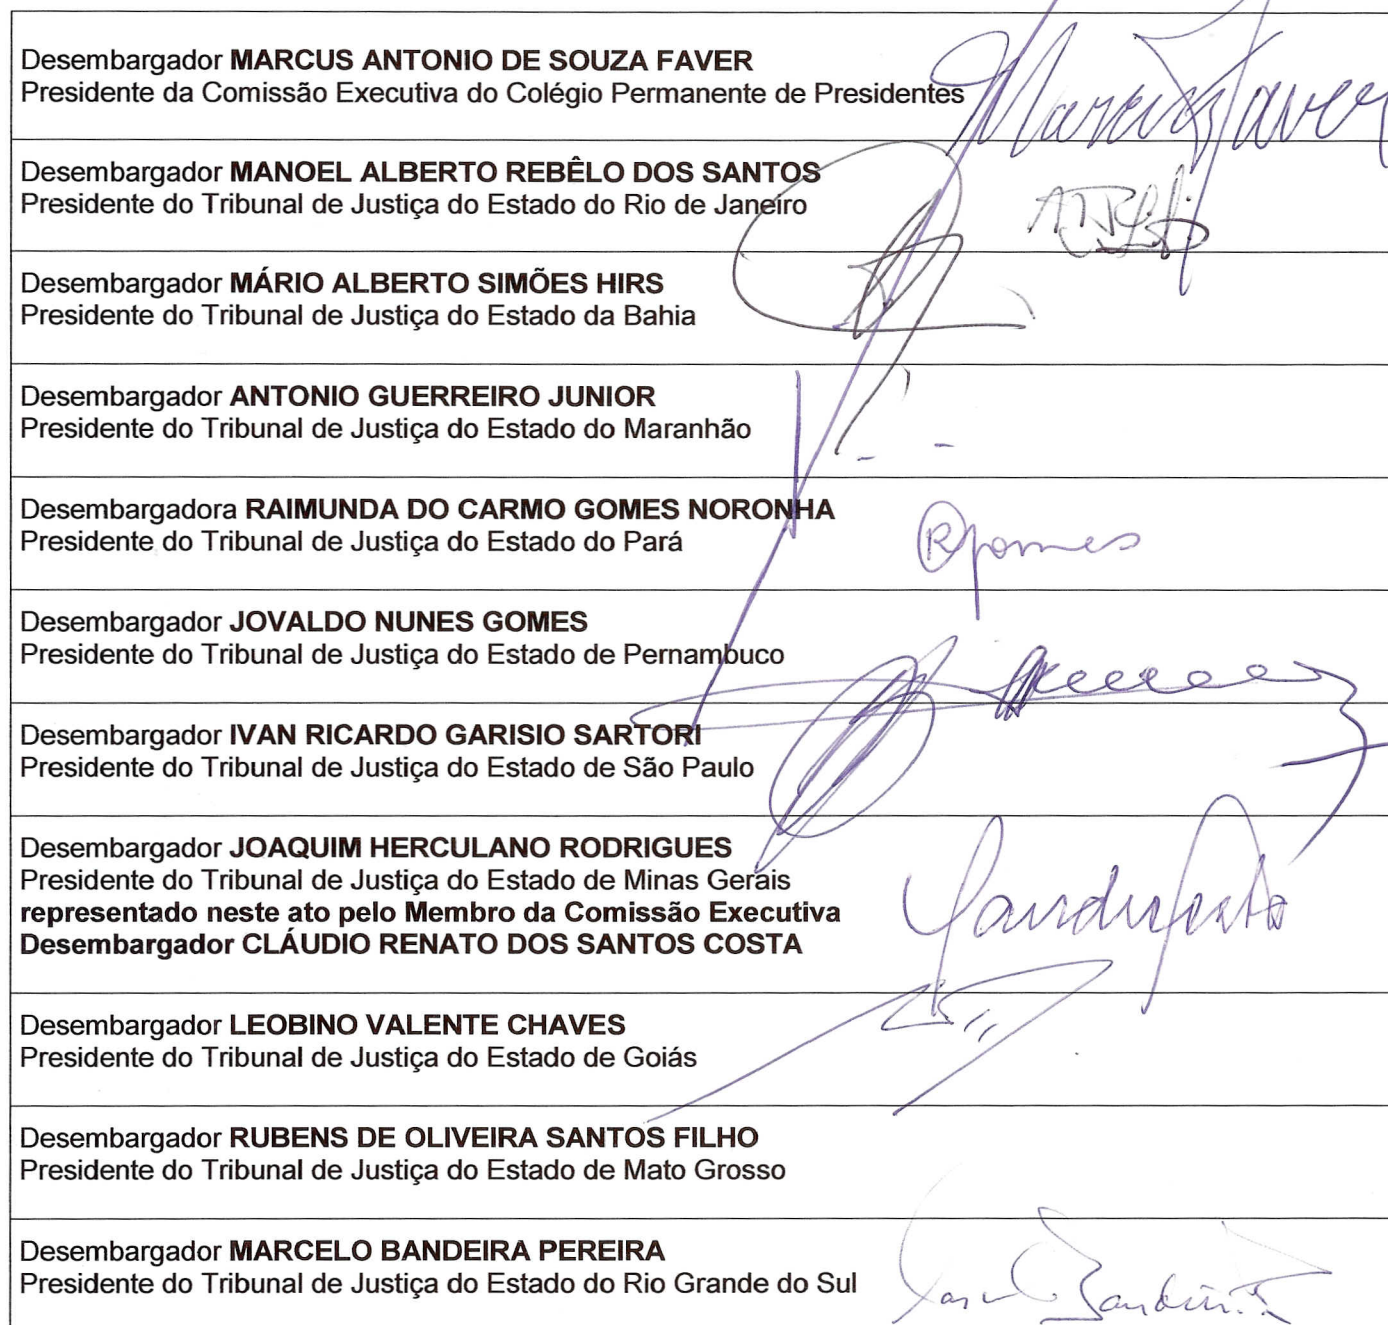 Desembargador MARCUS ANTONIO DE SOUZA FAVER
Presidente da Comissão Executiva do Colégio Permanente de Presidentes
Marcus Faver
Desembargador MANOEL ALBERTO REBÊLO DOS SANTOS
Presidente do Tribunal de Justiça do Estado do Rio de Janeiro
Desembargador MÁRIO ALBERTO SIMÕES HIRS
Presidente do Tribunal de Justiça do Estado da Bahia
Desembargador ANTONIO GUERREIRO JUNIOR
Presidente do Tribunal de Justiça do Estado do Maranhão
Desembargadora RAIMUNDA DO CARMO GOMES NORONHA
Presidente do Tribunal de Justiça do Estado do Pará
Rgomes
Desembargador JOVALDO NUNES GOMES
Presidente do Tribunal de Justiça do Estado de Pernambuco
Desembargador IVAN RICARDO GARISIO SARTORI
Presidente do Tribunal de Justiça do Estado de São Paulo
Desembargador JOAQUIM HERCULANO RODRIGUES
Presidente do Tribunal de Justiça do Estado de Minas Gerais
representado neste ato pelo Membro da Comissão Executiva
Desembargador CLÁUDIO RENATO DOS SANTOS COSTA
Desembargador LEOBINO VALENTE CHAVES
Presidente do Tribunal de Justiça do Estado de Goiás
Desembargador RUBENS DE OLIVEIRA SANTOS FILHO
Presidente do Tribunal de Justiça do Estado de Mato Grosso
Desembargador MARCELO BANDEIRA PEREIRA
Presidente do Tribunal de Justiça do Estado do Rio Grande do Sul